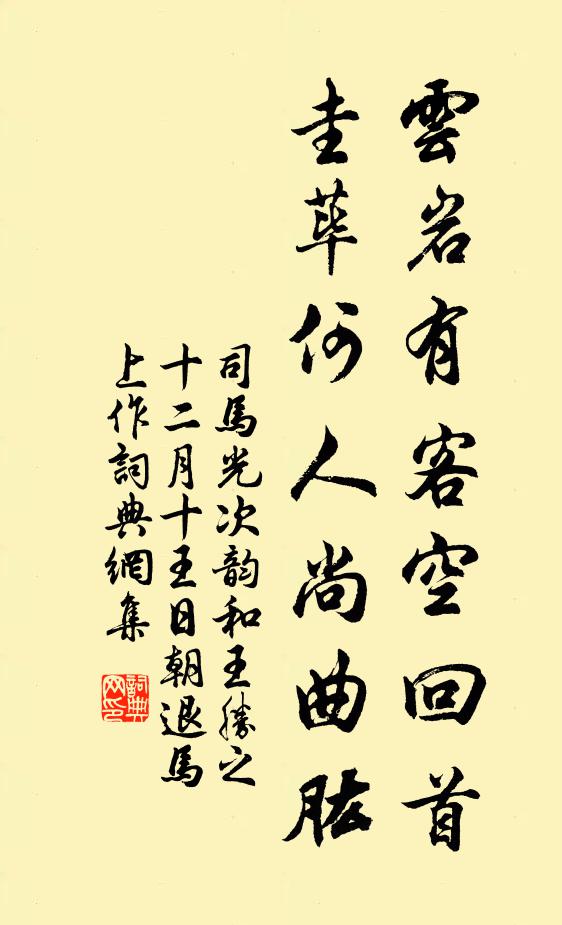 雲岩有客空回首
圭蓽何人尚曲肱
司馬光次韵和王勝之
十二月十王日朝退馬
上作詞典網集
詞典網印